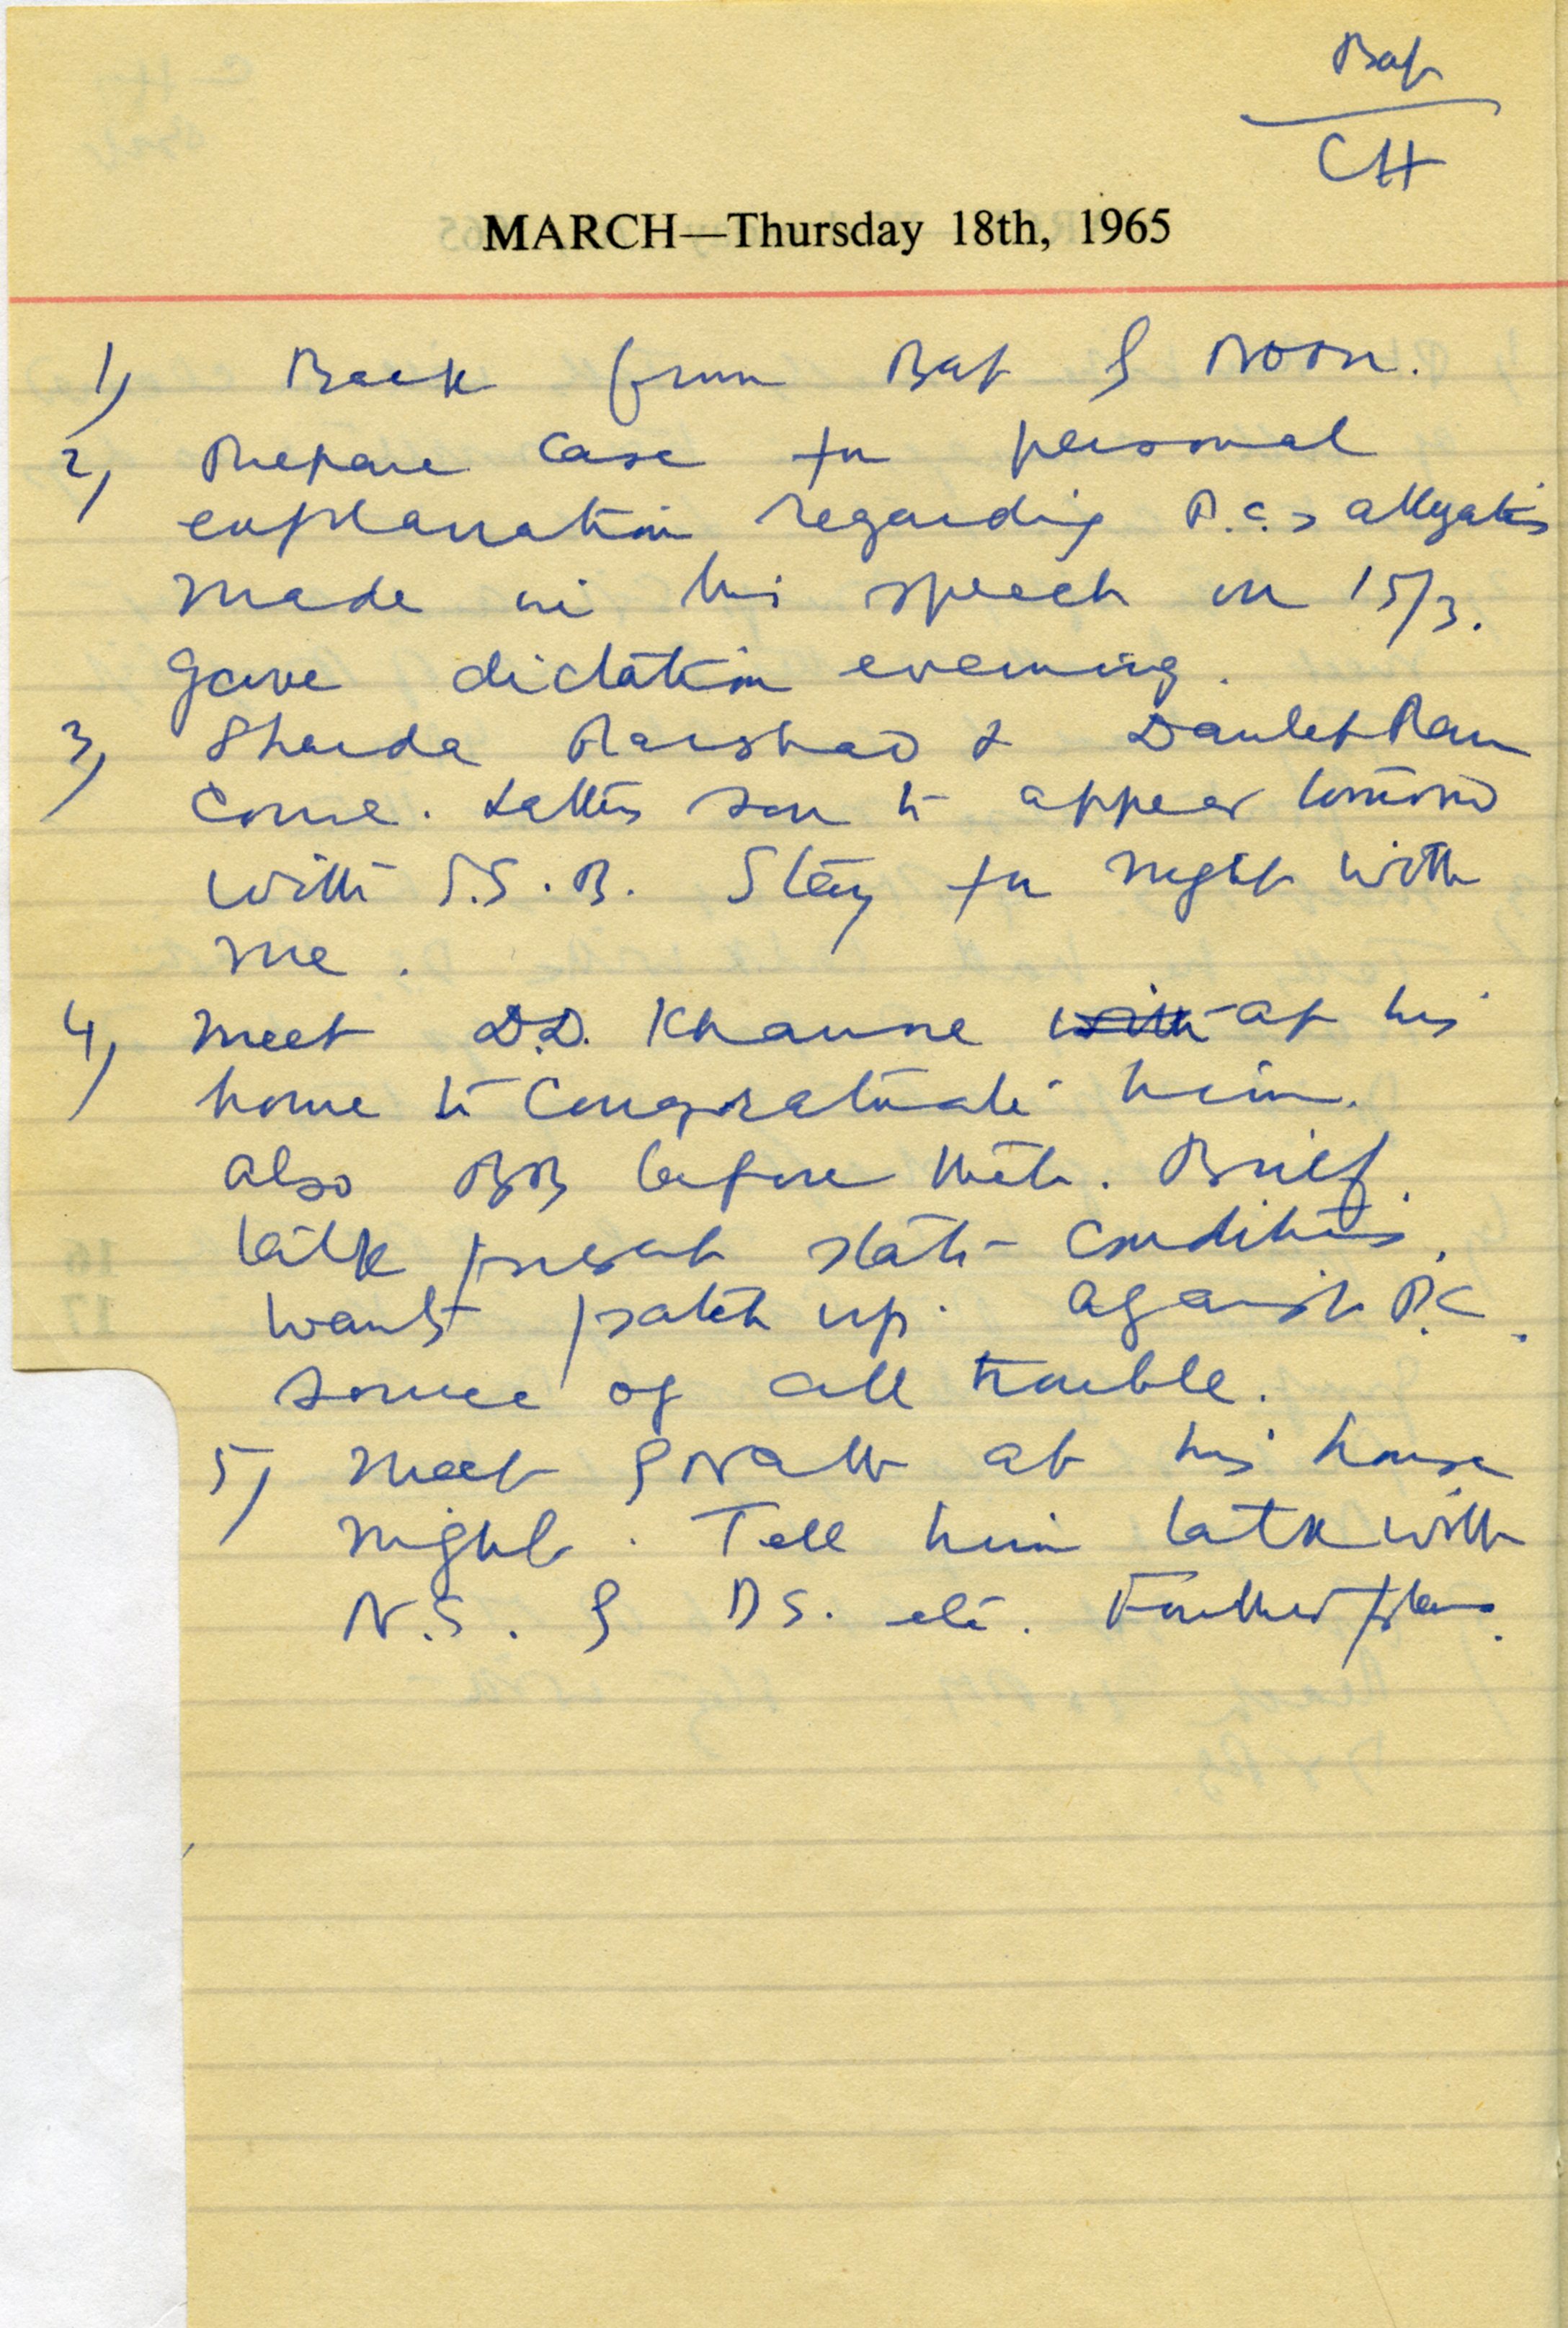 Bat
CH
MARCH—Thursday 18th, 1965
1) Back from Bat & noon.
2) Prepare case for personal
explanation regarding P.C.s allegations
made in his speech on 15/3.
Gave dictation evening.
3) Sharda Parshad & Daulet Ram
come. Latters son to appear tomorrow
with S.S.B. Stay for night with
me.
4) Meet D.D. Khanna with at his
home to congratulate him.
also BB before then. Brief
talk present state conditions.
wants patch up. against P.C.
source of all trouble.
5) Meet at his house
night. Tell him talk with
N.S. & DS. etc. Further plans.